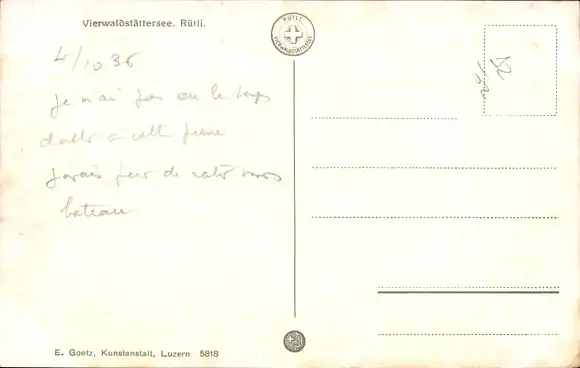 Vierwaldstättersee. Rütli.
RÜTLI
VIERWALDSTÄTTERSEE
4/10 36
Je n'ai pas eu le temps
d'aller à cette
j'avais peur de rater mon
bateau
E. Goetz, Kunstanstalt, Luzern 5818